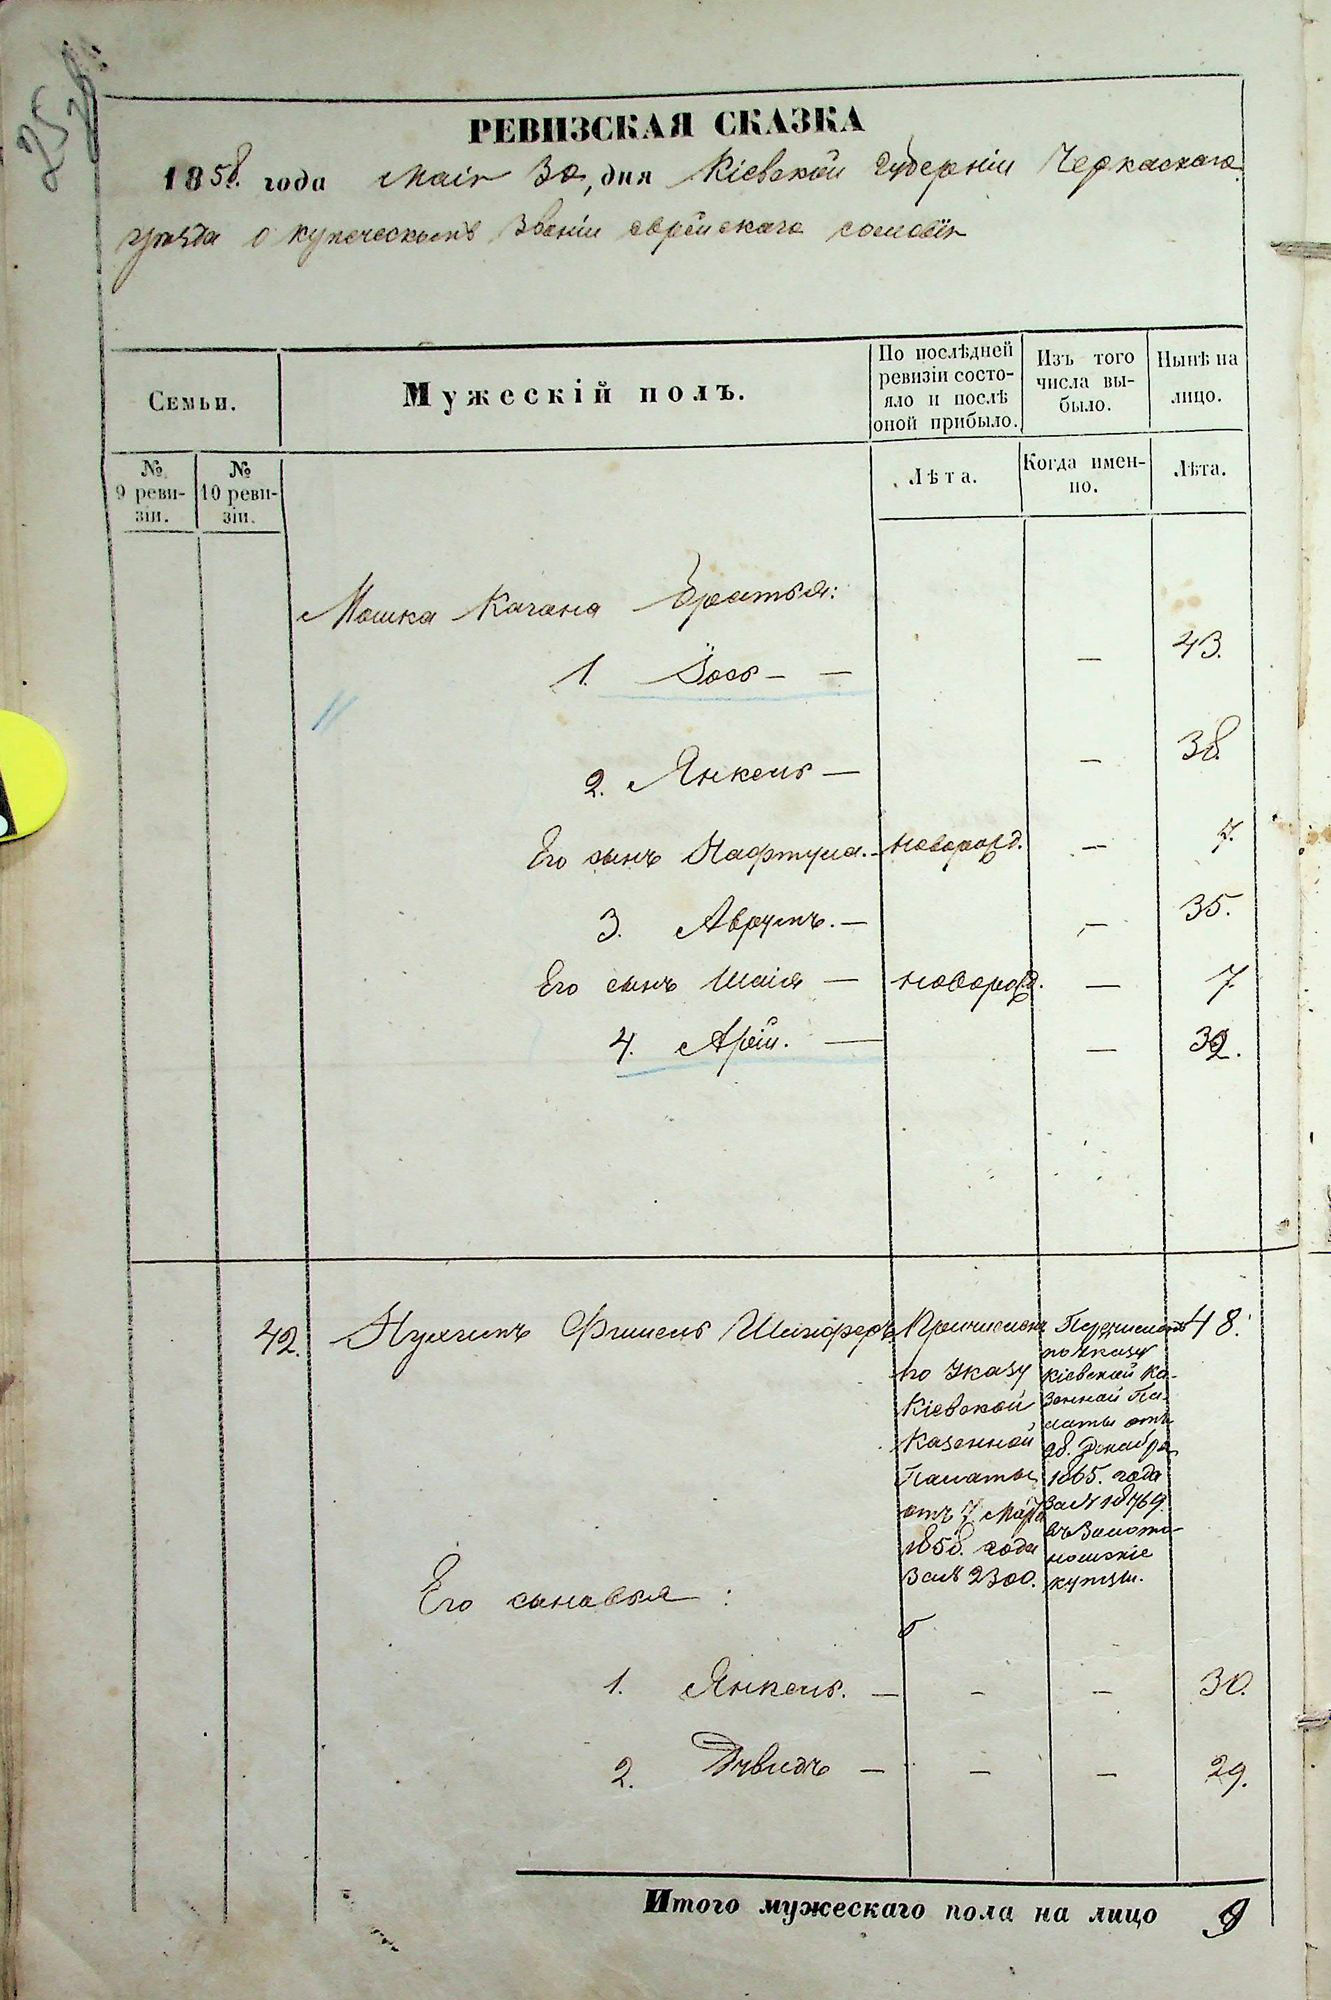 25
РЕВИЗСКАЯ СКАЗКА
1858. года Маія 30, дня Кіевской Губерніи Черкаскаго
уѣзда о купеческомъ званіи еврейскаго сословія
Семьи.
Мужескій полъ.
По послѣдней ревизіи состояло и послѣ оной прибыло.
Изъ того числа выбыло.
Нынѣ на лицо.
№ 9 ревизіи.
№ 10 ревизіи.
Лѣта.
Когда именно.
Лѣта.
Мошка Кагана Братья:
1. Іось — — — 43.
2. Янкель — — 38.
Его сынъ Нафтула. — новорожд. — 7.
3. Аврумъ. — — 35.
Его сынъ Шаія — новорожд. — 7.
4. Арій. — — 32.
42. Нухимъ Фишель 48.
Причисленъ
по Указу
Кіевской
Казенной
Палаты
отъ 7 Марта
1858. года
за № 2300.
Перечисленъ
по Указу
Кіевской Ка-
зенной Па-
латы отъ
28. Декабря
1865. года
за № 18769.
въ Золото-
ношскіе
купцы.
Его сыновья :
1. Янкель. — — — 30.
2. Дувидъ — — — 29.
Итого мужескаго пола на лицо 9